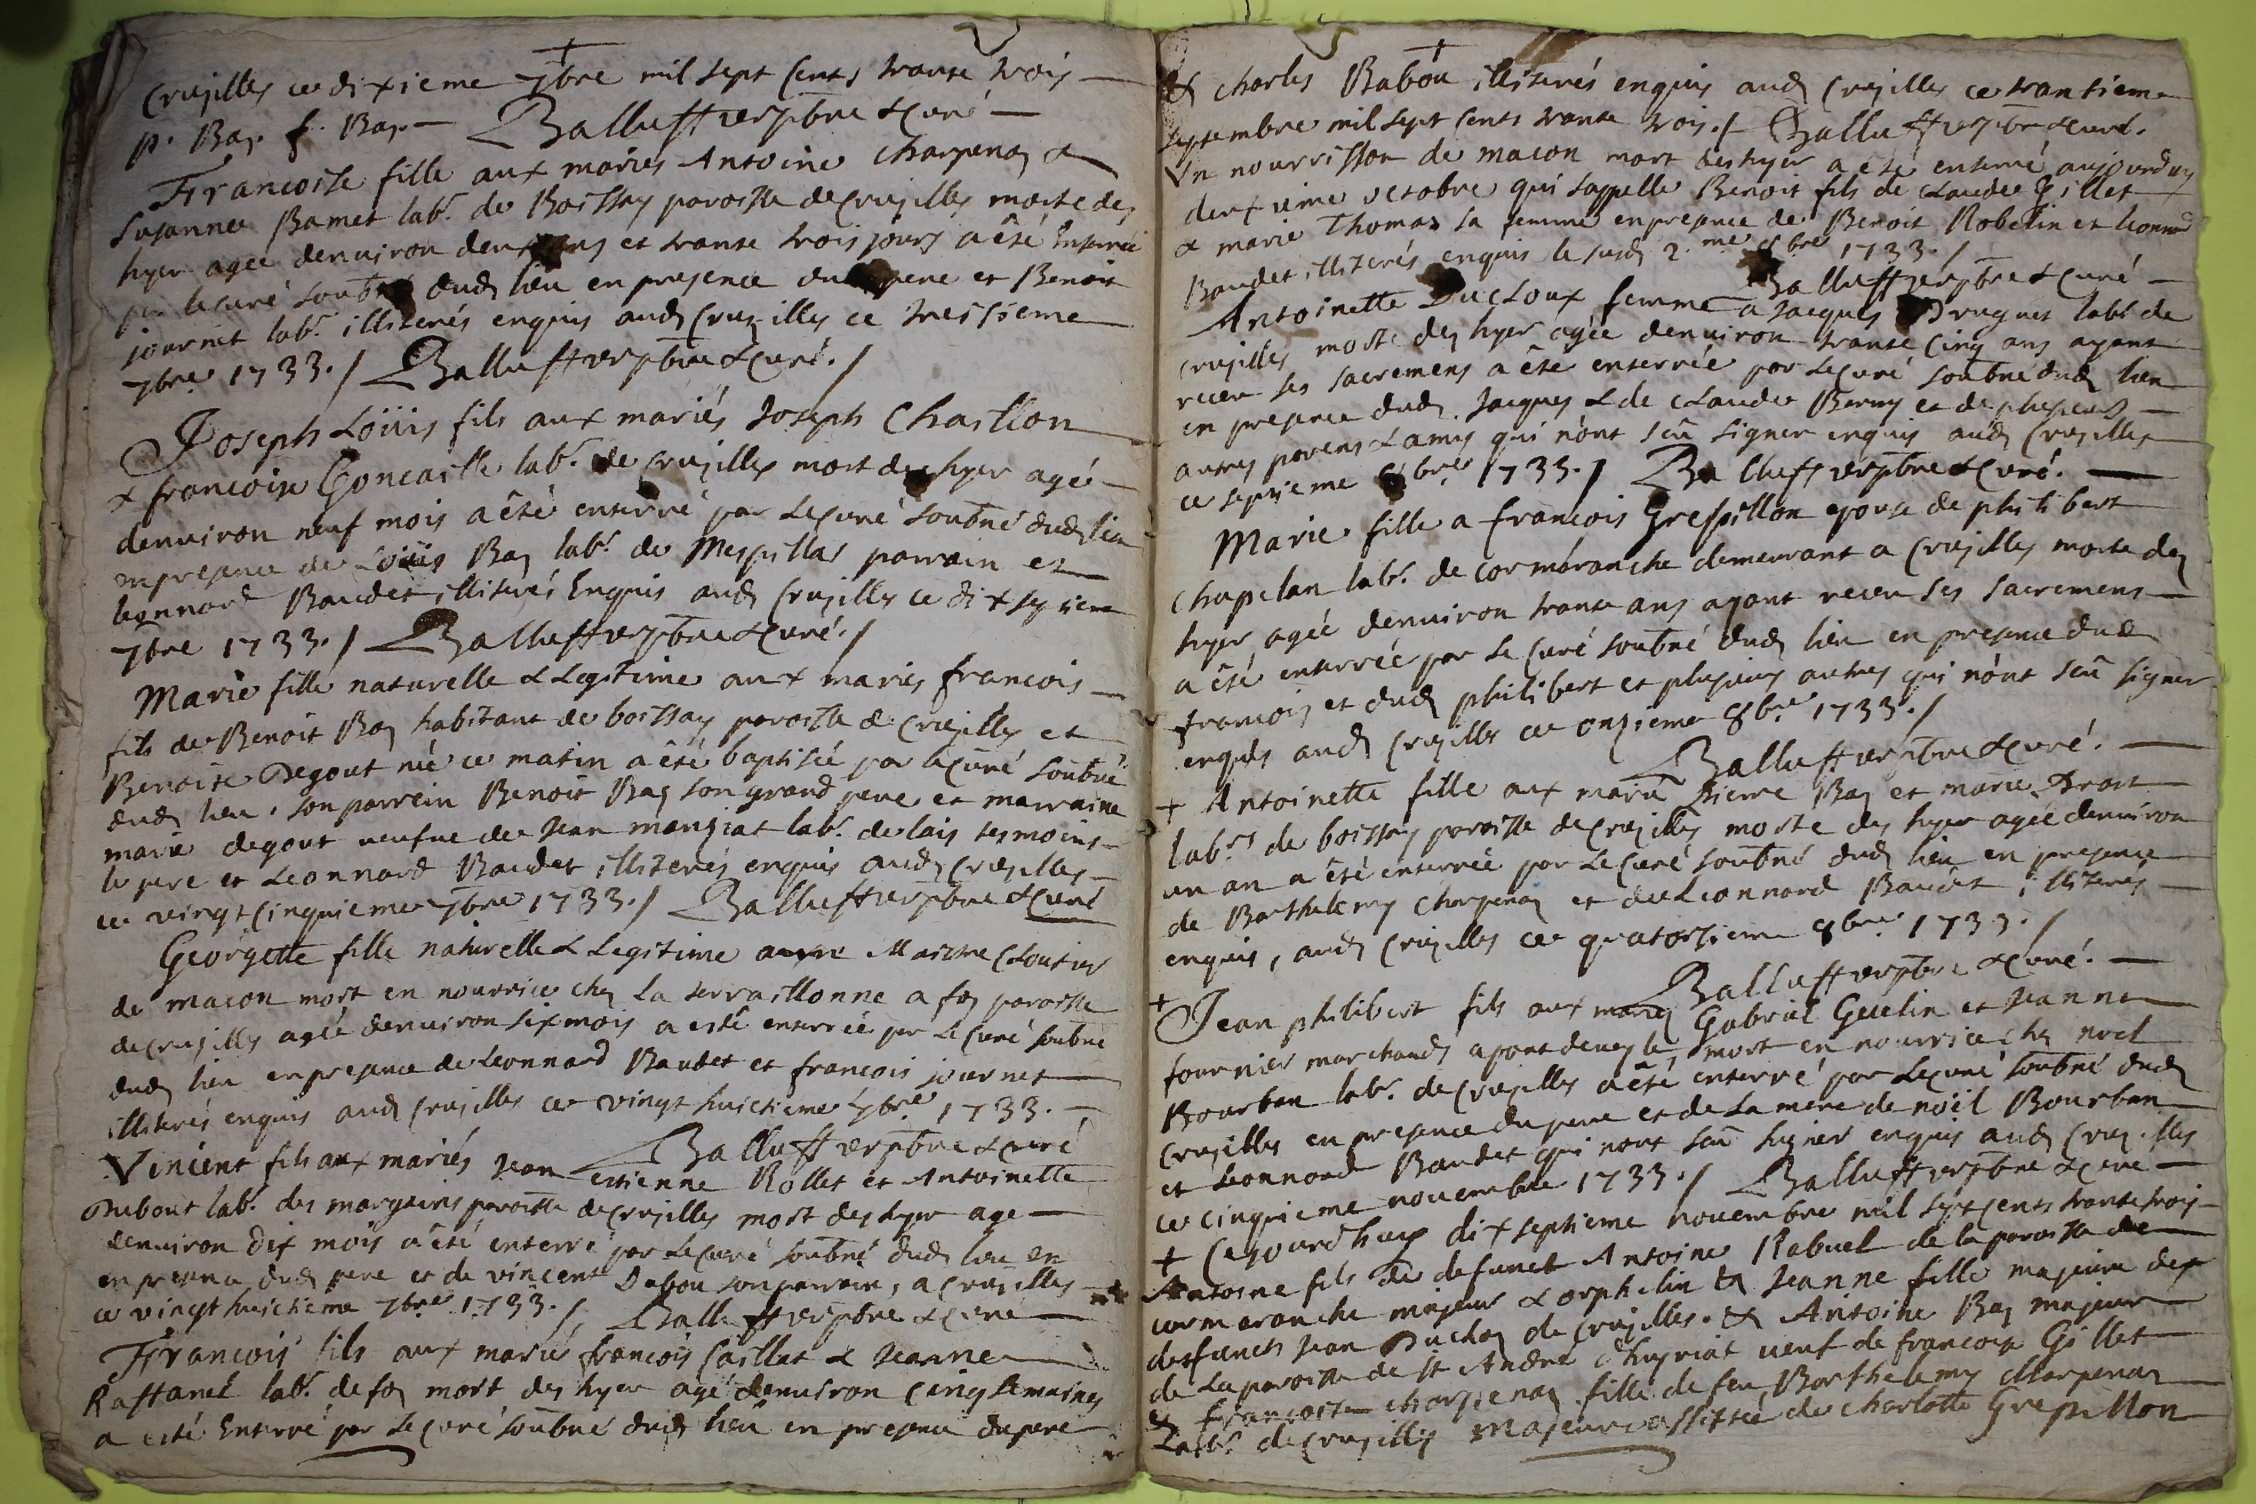 Crusilles ce dixieme 7bre mil sept cents trante trois
p. Bay. f. Bay. Balluffierpbre & curé
Francoise fille aux mariés Antoine Charpenay &
Susanne Bamet labr. de Boissey paroisse de Crusilles morte des
hyer agée denuiron deux ans et trante trois jours a été enterrée
par le curé soubné dud lieu en presence du pere et Benoit
journet labr. illiterés enquis aud Crusilles ce tressieme
7bre 1733./ Balluffierpbre & curé./
Joseph Loüis fils aux mariés Joseph Chastlon
& francoise Goncaille labr. de Crusilles mort des hyer agé
denuiron neuf mois a été enterré par le curé soubné dud lieu
en presence de Loüis Bay labr. de Mespillas parrain et
leonnard Baudet illiterés Enquis aud Crusilles ce dix septieme
7bre 1733./ Balluffierpbre & curé./
Marie fille naturelle & Legitime aux mariés francois
fils de Benoit Bay habitant de boissay paroisse de Crusilles et
Benoite Degout née ce matin a été baptisée par le curé soubné
dud lieu, son parrein Benoit Bay son grand pere et marraine
marie degout veufue de Jean mangiat labr. de lais tesmoins
le pere et Leonnard Baudet illiterés enquis aud Crusilles
ce vingt cinquieme 7bre 1733./ Balluffierpbre & curé
Georgette fille naturelle & Legitime a Maistre Cloutier
de macon mort en nourrice chez La terraillonne a foy paroisse
de Crusilles agée denuiron six mois a esté enterrée par Le curé soubné
dud lieu en presence de Leonnard Baudet et francois journet
illiterés enquis aud Crusilles ce vingt huictieme 7bre 1733.
Balluffierpbre & curé
Vincent fils aux mariés Jean etienne Rollet et Antoinette
Dubout labr. des margains paroisse de Crusilles mort des hyer age
denuiron dix mois a été enterré par Le curé soubné dud lieu en
en presence dud pere et de vincent Dabou son parrain, a Crusilles
ce vingt huictieme 7bre 1733./ Balluffierpbre & curé
Francois fils aux mariés francois Caillat & Jeanne
Raffanel labr. de foy mort des hyer agé denuiron cinq semaines
a esté Enterré par Le curé soubné dud lieu en presence du pere
& charles Babou illiterés enquis aud Crusilles ce trantieme
septembre mil sept cents trante trois./ Balluffierpbre & curé.
Un nourrisson de macon mort des hyer a été enterré aujourduy
deuxieme octobre qui sappelle Benoit fils de claude Gillet
& marie Thomas sa femme en presence de Benoit Robelin et leonnard
Baudet illiterés enquis le susd 2.me 8bre 1733./
Balluffierpbre & curé
Antoinette Ducloux femme a Jacques Druguet labr de
Crusilles morte des hyer agée denuiron trante cinq ans ayant
receu ses sacremens a été enterrée par Le curé soubné dud lieu
en presence dud. Jacques & de claude Berny et de plusieurs
autres parens & amis qui nont sceu signer enquis aud Crusilles
ce septieme 8bre 1733./ Balluffierpbre & curé.
Marie fille a francois Grespillon epouse de philibert
Chapelan labr. de cormaranche demeurant a Crusilles morte des
hyer agée denuiron trante ans ayant receu ses sacremens
a été enterrée par le curé soubné dud lieu en presence dud
francois et dud philibert et plusieurs autres qui nont sceu signer
enquis aud Crusilles ce onzieme 8bre 1733./
Balluffierpbre & curé.
+ Antoinette fille aux mariés Pierre Bay et marie Drost
labrs de boissay paroisse de Crusilles morte des hyer agée denuiron
un an a été enterrée par Le curé soubné dud lieu en presence
de Barthelemy Charpenay et de Leonnard Baudet illiterés
enquis, aud Crusilles ce quatorsieme 8bre 1733./
Balluffierpbre & curé.
+ Jean philibert fils aux mariés Gabriel Guelin et Jeanne
fournier marchands a pont deveyle, mort en nourrice chez noel
Bourban labr. de Crusilles a été enterré par Le curé soubné dud
Crusilles en presence du pere et de La mere de noël Bourban
et Leonnard Baudet qui nont sceu signer enquis aud Crusilles
ce cinquieme nouembre 1733./ Balluffierpbre & curé
+ Cejourdhuy dix septieme nouembre mil sept cents trante trois
Antoine fils de defunct Antoine Rabuel de la paroisse de
cormaranche majeur & orphelin & Jeanne fille majeure des
desfuncts Jean Duchay de Crusilles. & Antoine Bay majeur
de La paroisse de St André dhuyriat veuf de francoise Gillet
& francoise charpenay fille de feu Barthelemy charpenay
Labr. de Crusilles majeure assistée de charlotte Grepillon